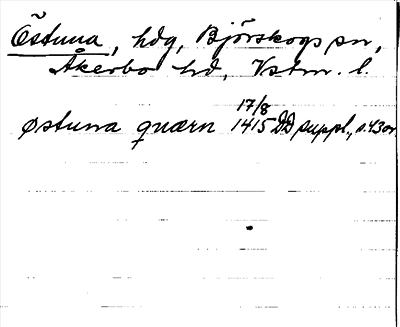 Östuna, hdg, Björskogs sn,
Åkerbo hd, Vstm. l.
17/8
Østuna quærn 1415 DD suppl., s. 43 or.